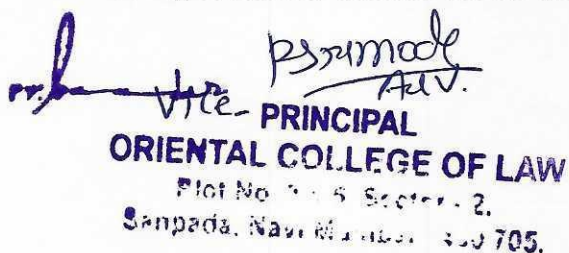 Adv.
Vice- PRINCIPAL
ORIENTAL COLLEGE OF LAW
Plot No. Sector - 2,
Sanpada, Navi 705.